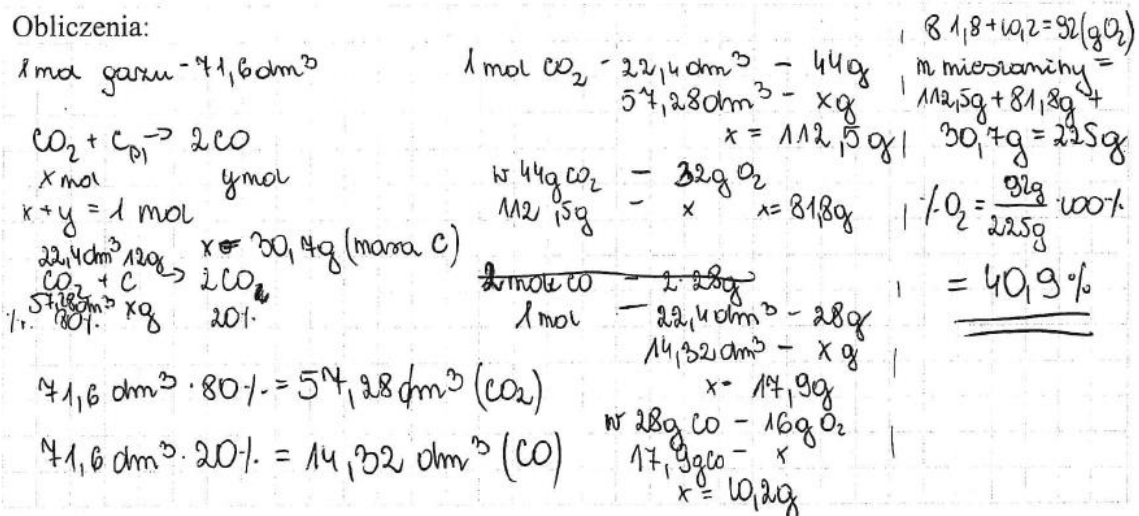 Obliczenia:
1 mol gazu - 71,6 dm³
CO₂ + C(s) → 2CO
x mol y mol
x + y = 1 mol
22,4 dm³ 12g x = 30,7g (masa C)
CO₂ + C → 2CO
57,28dm³ xg
80% 20%
71,6 dm³ · 80% = 57,28 dm³ (CO₂)
71,6 dm³ · 20% = 14,32 dm³ (CO)
1 mol CO₂ - 22,4 dm³ - 44g
57,28dm³ - xg
x = 112,5g
w 44g CO₂ - 32g O₂
112,5g - x x = 81,8g
2 mole CO - 2·28g
1 mol - 22,4 dm³ - 28g
14,32 dm³ - xg
x = 17,9g
w 28g CO - 16g O₂
17,9g CO - x
x = 10,2g
81,8 + 10,2 = 92 (gO₂)
m mieszaniny =
112,5g + 81,8g +
30,7g = 225g
% O₂ = 92g / 225g · 100%
= 40,9%